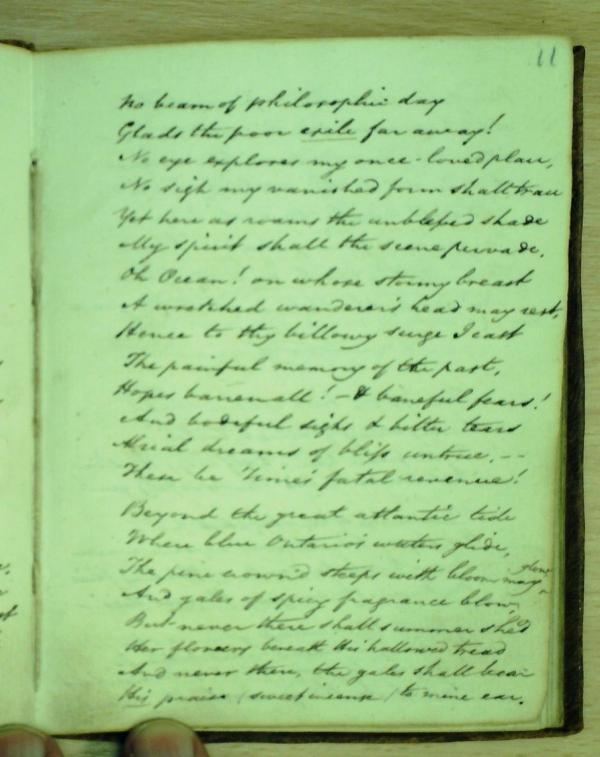 11
No beam of philosophic day
Glads the poor exile far away!
No eye explores my once-loved place,
No sigh my vanished form shall trace
Yet here as roams the unblessed shade
My spirit shall the scene pervade.
Oh Ocean! on whose stormy breast
A wretched wanderer's head may rest,
Hence to thy billowy surge I cast
The painful memory of the past,
Hopes barren all! – & baneful fears!
And bodeful sighs & bitter tears
Aërial dreams of bliss untrue. --
These be Time's fatal revenue!
Beyond the great atlantic tide
Where blue Ontario's waters glide,
The pine crown'd steeps with bloom may glow
And gales of spicy fragrance blow,
But never there shall summer shed
Her flowers beneath His hallowed tread
And never there, the gales shall bear
His praise (sweet incense) to mine ear.